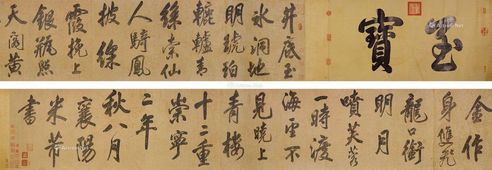 至寶
井底玉
冰洞地
明琥珀
轆轤青
絲索仙
人騎鳳
披綵
霞挽上
銀瓶照
天閣黃
金作
身雙飛
龍口銜
明月
噴芙蓉
一時渡
海望不
見曉上
青樓
十二重
崇寧
二年
秋八月
襄陽
米芾
書